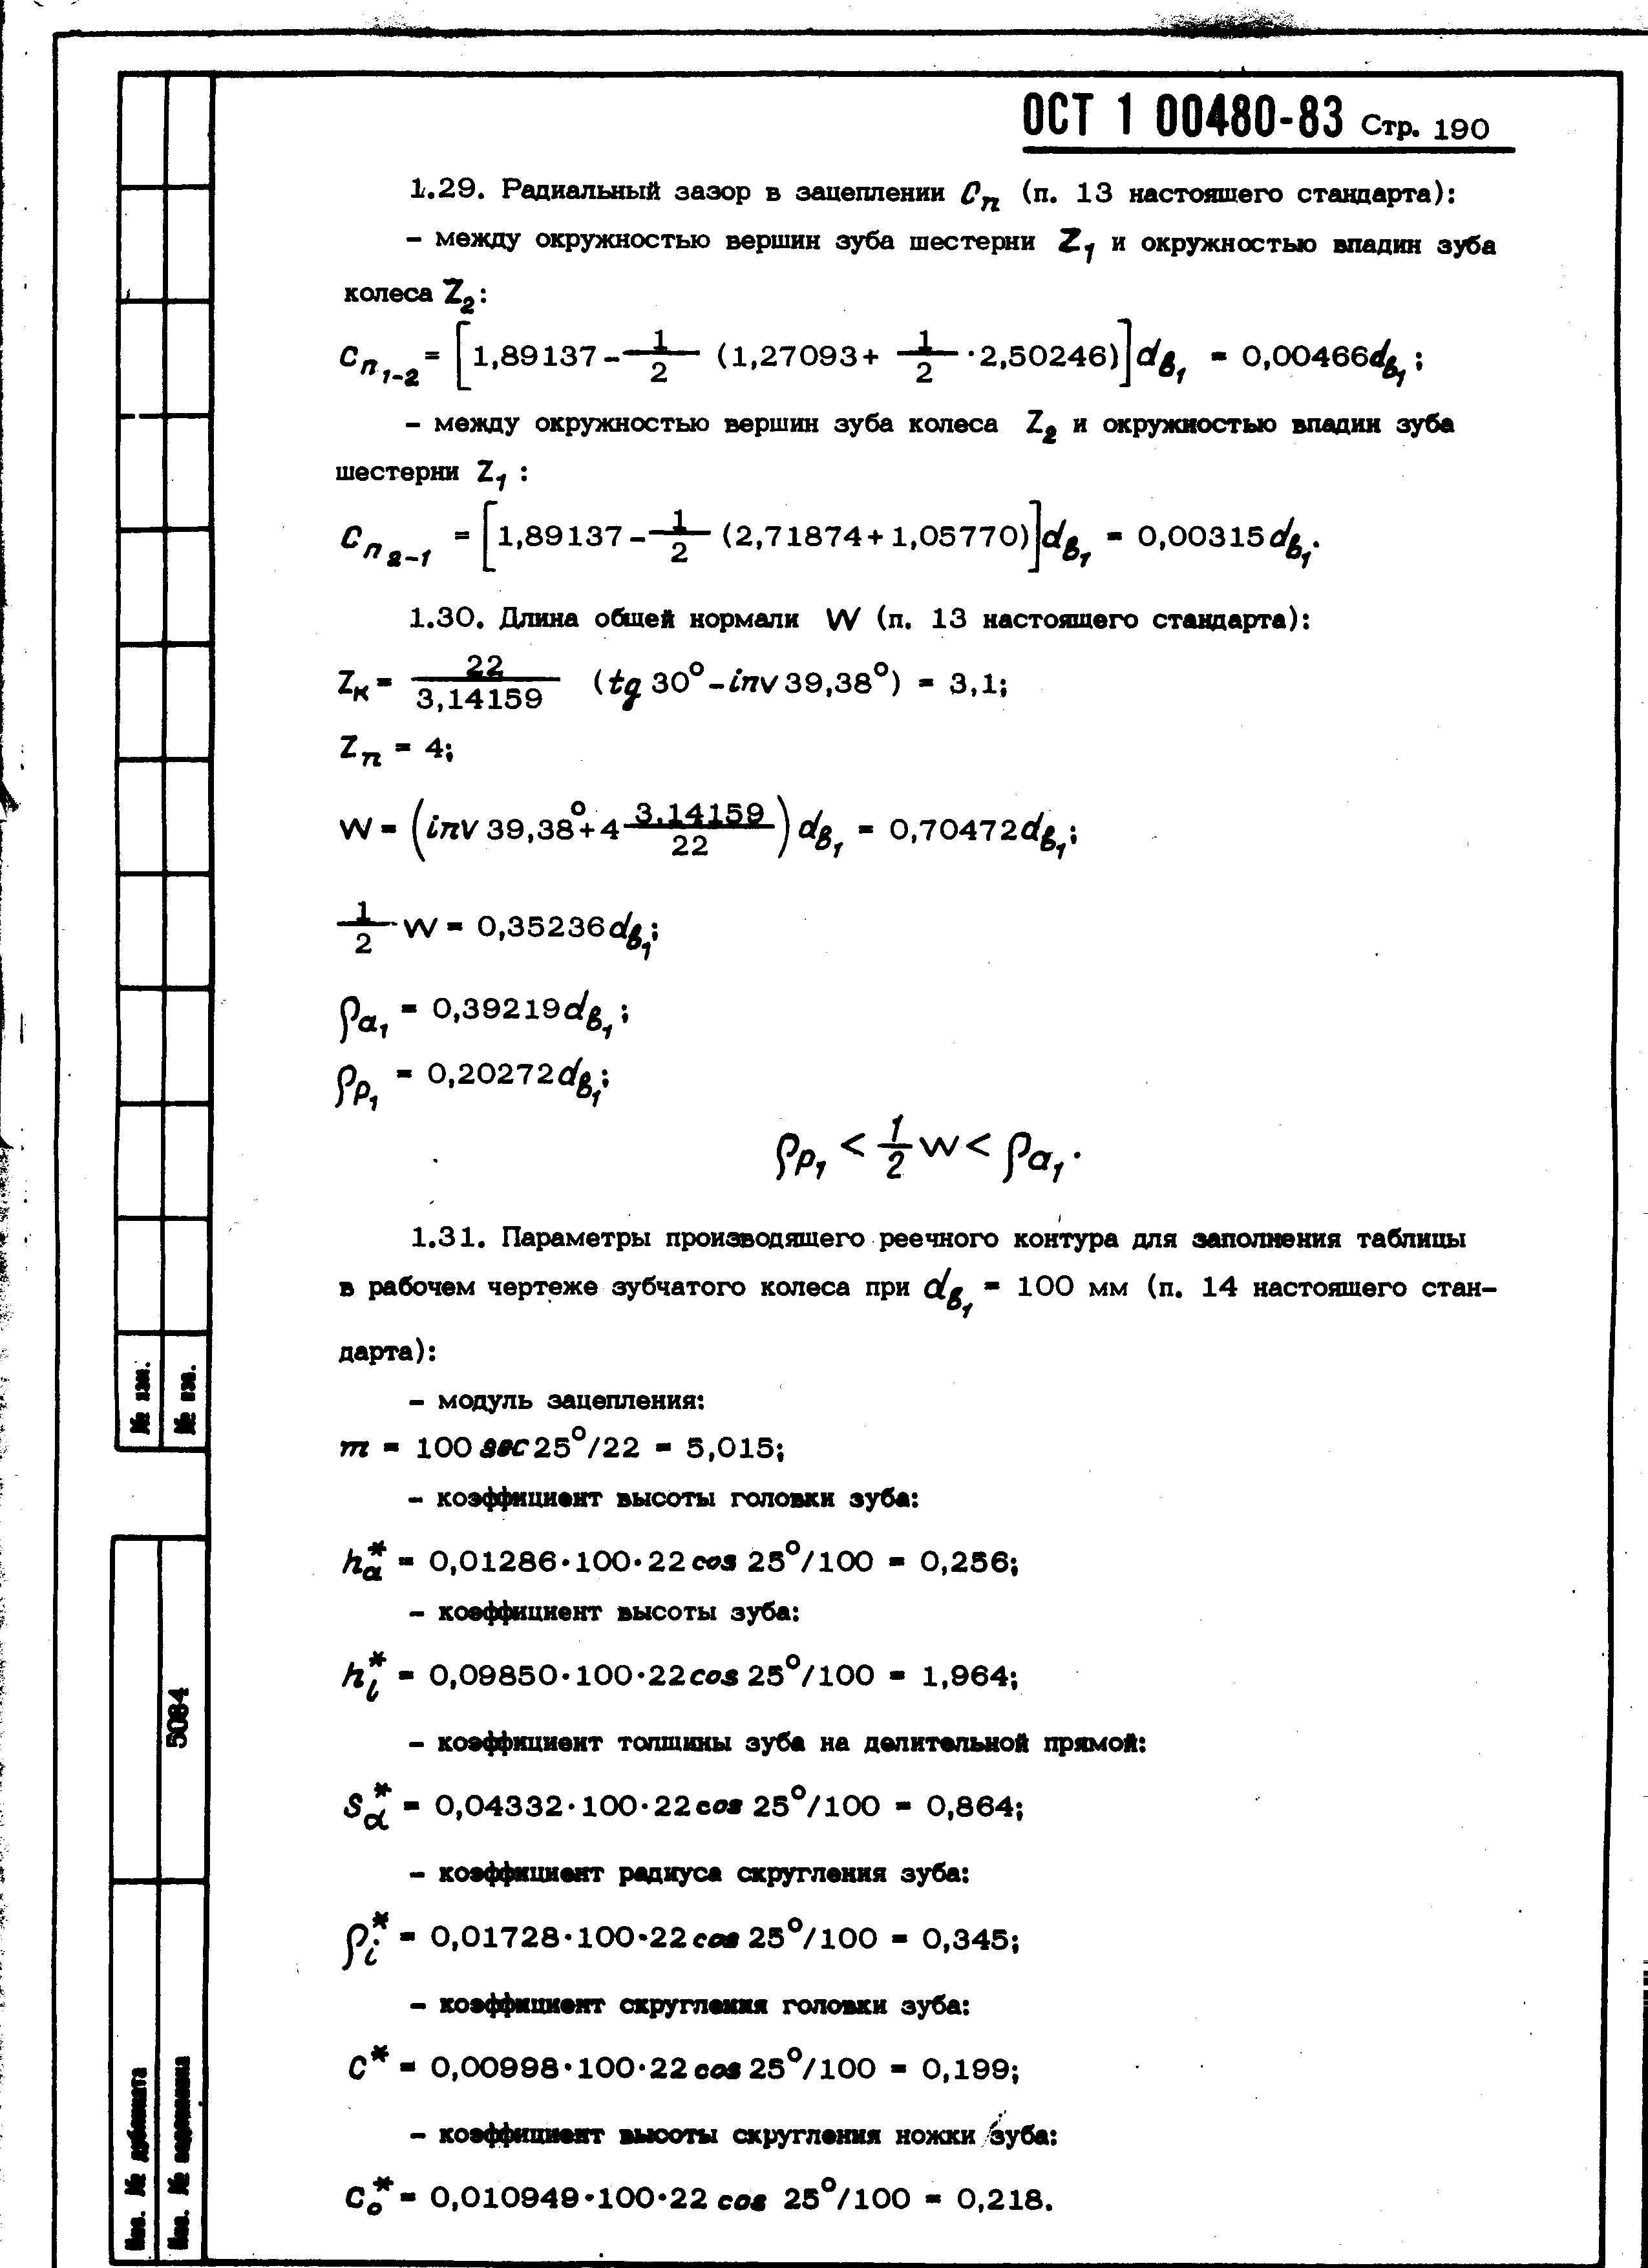 ОСТ 1 00480-83 Стр. 190
1.29. Радиальный зазор в зацеплении Cп (п. 13 настоящего стандарта):
– между окружностью вершин зуба шестерни Z1 и окружностью впадин зуба
колеса Z2:
Cп1-2 = [1,89137 - 1/2 (1,27093 + 1/2 · 2,50246)] dв1 = 0,00466dв1;
– между окружностью вершин зуба колеса Z2 и окружностью впадин зуба
шестерни Z1 :
Cп2-1 = [1,89137 - 1/2 (2,71874 + 1,05770)] dв1 = 0,00315dв1.
1.30. Длина общей нормали W (п. 13 настоящего стандарта):
Zк = 22/3,14159 (tg 30° - inv 39,38°) = 3,1;
Zп = 4;
W = (inv 39,38° + 4 3,14159/22) dв1 = 0,70472dв1;
1/2 W = 0,35236dв1;
ρa1 = 0,39219dв1;
ρp1 = 0,20272dв1;
ρp1 < 1/2 W < ρa1.
1.31. Параметры производящего реечного контура для заполнения таблицы
в рабочем чертеже зубчатого колеса при dв1 = 100 мм (п. 14 настоящего стан-
дарта):
– модуль зацепления:
m = 100 sec 25°/22 = 5,015;
– коэффициент высоты головки зуба:
ha* = 0,01286·100·22 cos 25°/100 = 0,256;
– коэффициент высоты зуба:
hi* = 0,09850·100·22 cos 25°/100 = 1,964;
– коэффициент толщины зуба на делительной прямой:
Sα* = 0,04332·100·22 cos 25°/100 = 0,864;
– коэффициент радиуса скругления зуба:
ρi* = 0,01728·100·22 cos 25°/100 = 0,345;
– коэффициент скругления головки зуба:
C* = 0,00998·100·22 cos 25°/100 = 0,199;
– коэффициент высоты скругления ножки зуба:
Co* = 0,010949·100·22 cos 25°/100 = 0,218.
№ изм.
№ изв.
5084
Инв. № дубликата
Инв. № подлинника